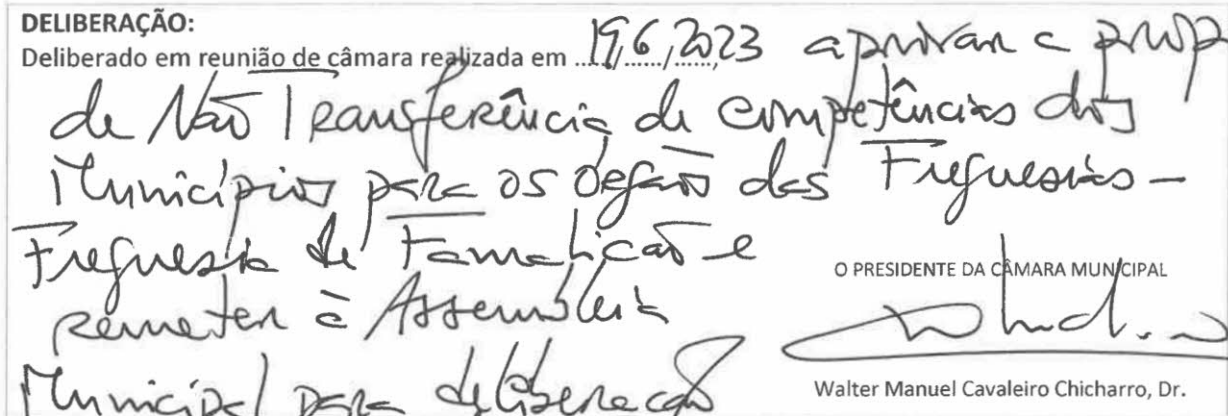 DELIBERAÇÃO:
Deliberado em reunião de câmara realizada em 19/6/2023 aprovar a prop
de Não Transferência de competências dos
Municípios para os órgãos das Freguesias -
Freguesia de Famalicão e
remeter à Assembleia
Municipal para deliberação
O PRESIDENTE DA CÂMARA MUNICIPAL
Walter Manuel Cavaleiro Chicharro, Dr.